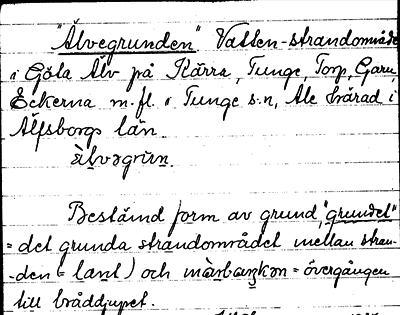 "Älvegrunden" Vatten-strandområde
i Göta Älv på Kärra, Tunge, Torp, Garn,
Eckerna m.fl. i Tunge s:n, Ale härad i
Älfsborgs län.
Bestämd form av grund, "grundet"
= det grunda strandområdet mellan stran-
-den (= land) och = övergången
till bråddjupet.